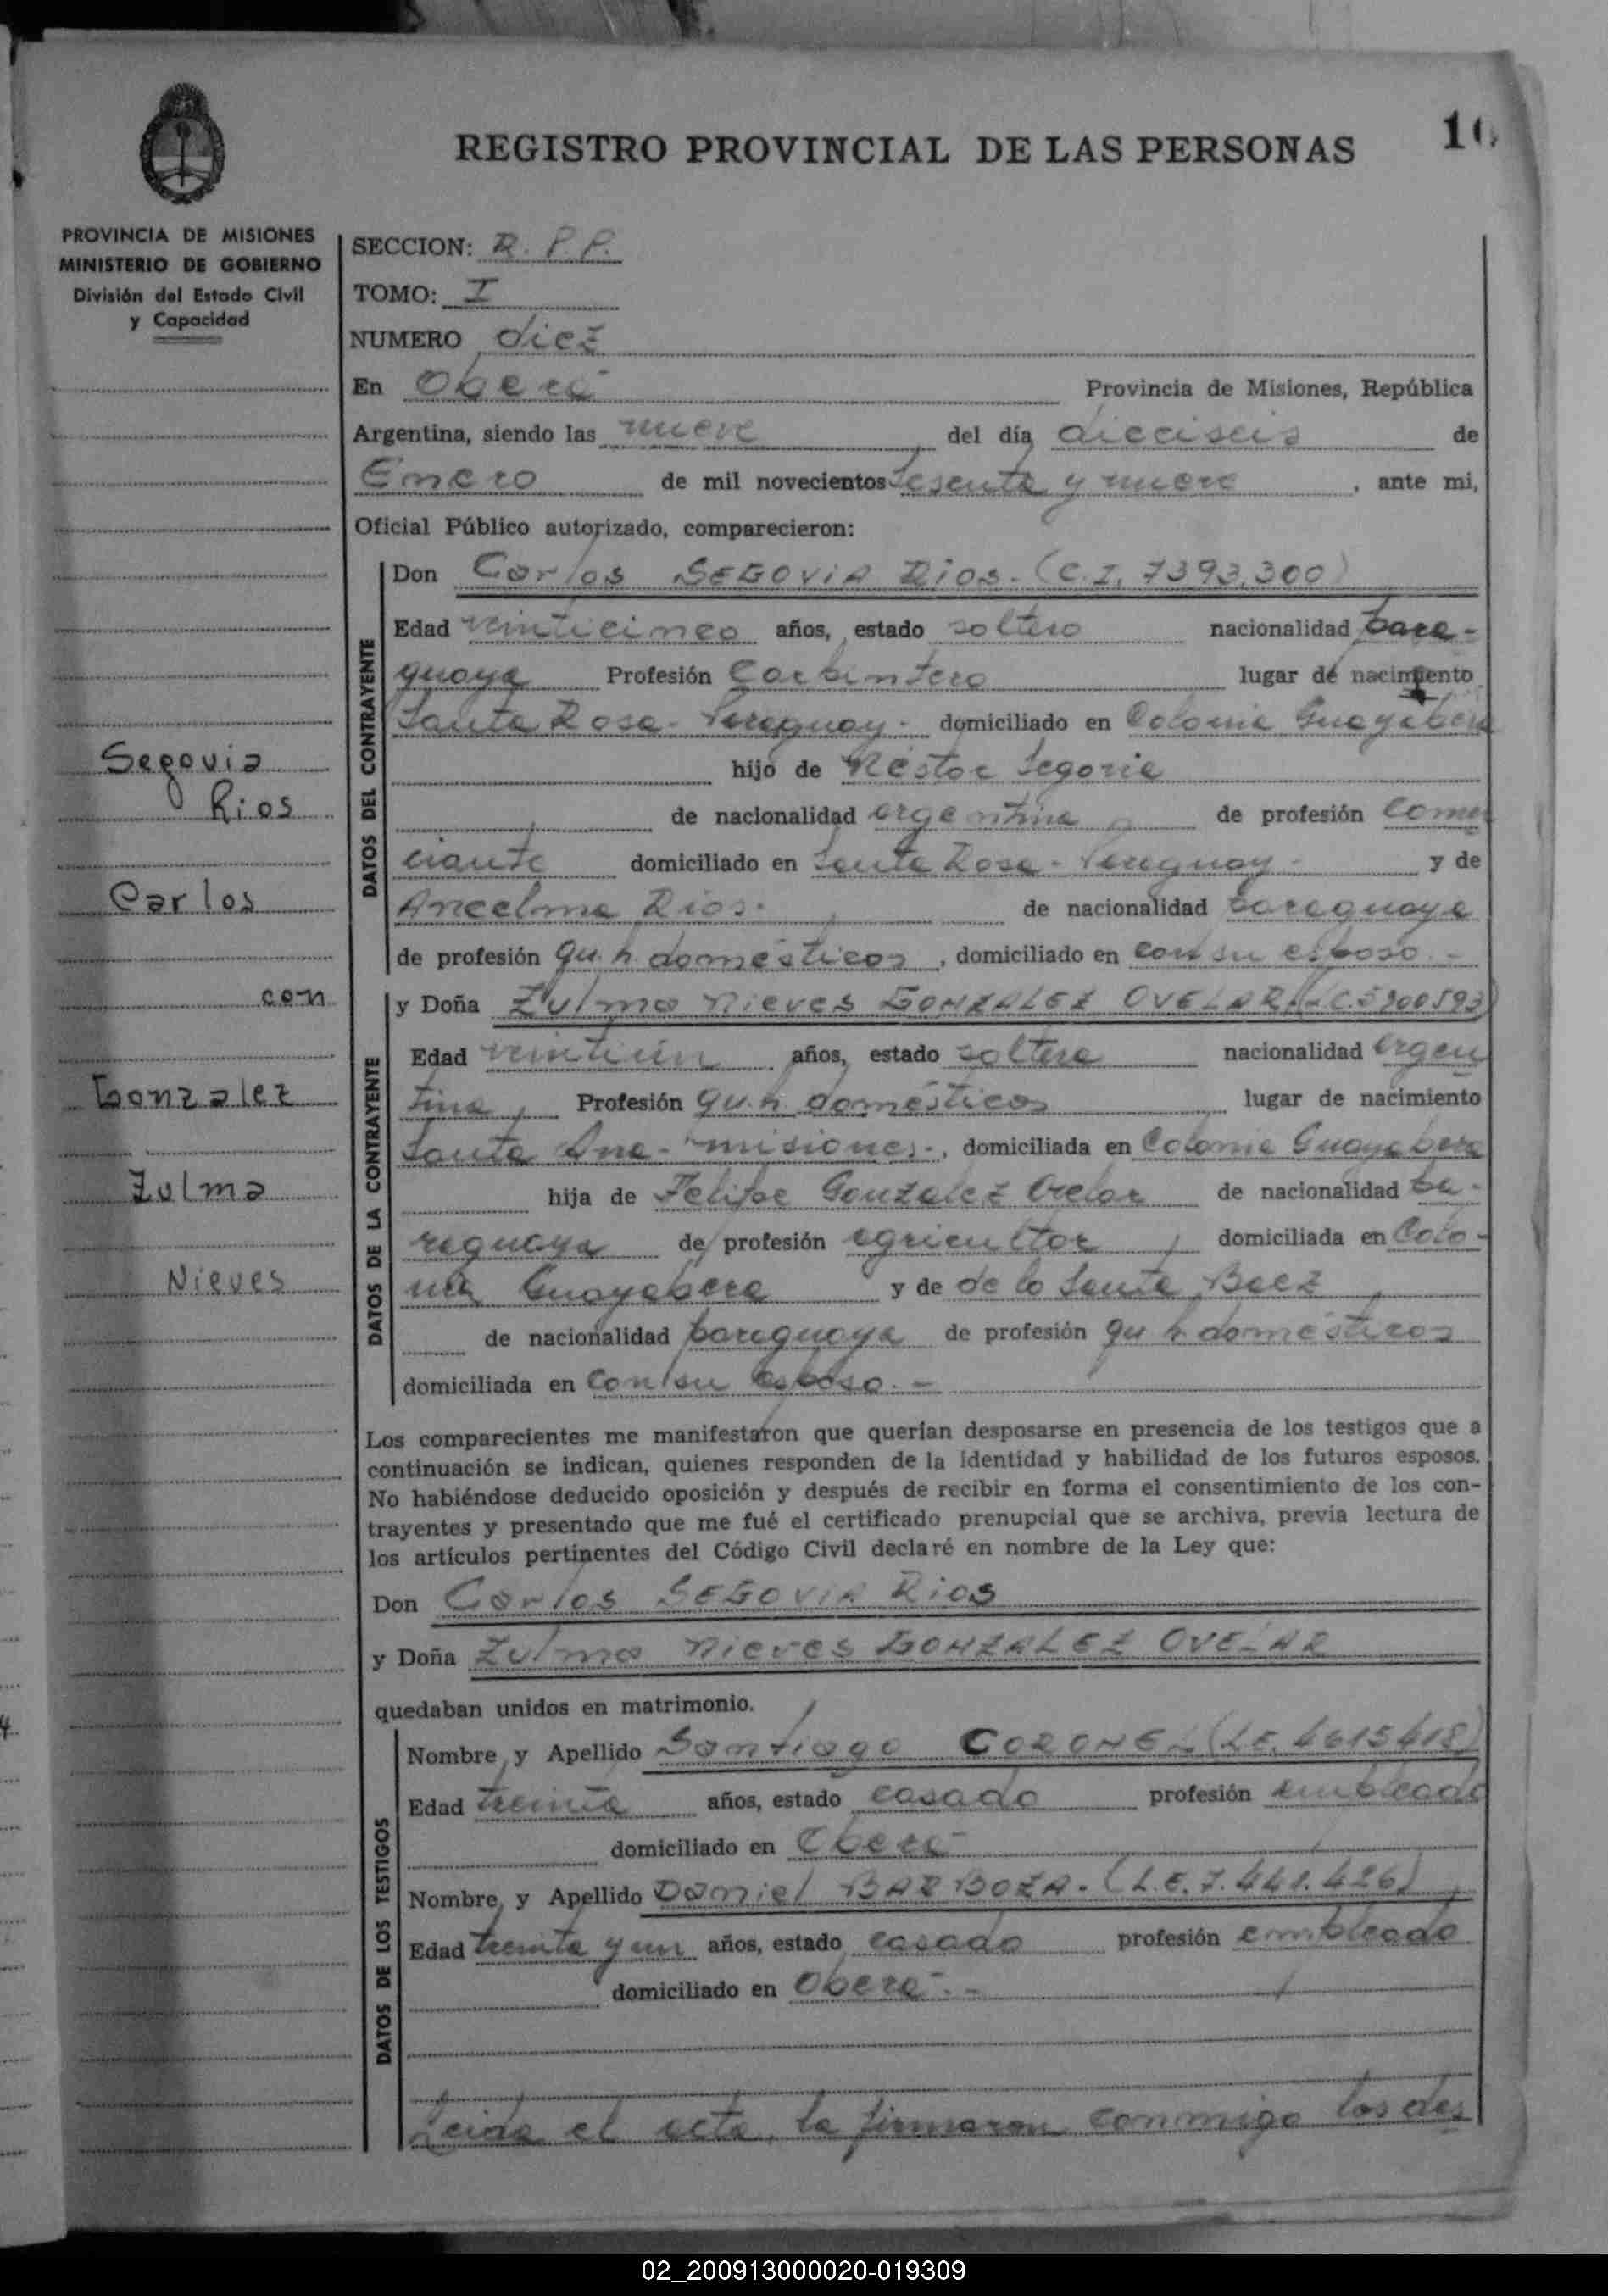 REGISTRO PROVINCIAL DE LAS PERSONAS
10
PROVINCIA DE MISIONES
MINISTERIO DE GOBIERNO
División del Estado Civil
y Capacidad
Segovia
Rios
Carlos
con
Gonzalez
Zulma
Nieves
SECCION: R. P. P.
TOMO: I
NUMERO diez
En Oberá Provincia de Misiones, República
Argentina, siendo las nueve del día dieciseis de
Enero de mil novecientos sesenta y nueve, ante mi,
Oficial Público autorizado, comparecieron:
DATOS DEL CONTRAYENTE
Don Carlos SEGOVIA Rios.- (C.I. 7393.300)
Edad veinticinco años, estado soltero nacionalidad para-
guaya Profesión Carpintero lugar de nacimiento
Santa Rosa - Paraguay - domiciliado en Colonia Guayabera
hijo de Néstor Segovia
de nacionalidad argentina de profesión comer
ciante domiciliado en Santa Rosa - Paraguay - y de
Ancelma Rios. de nacionalidad paraguaya
de profesión qu. h. domésticos, domiciliado en con su esposo. -
DATOS DE LA CONTRAYENTE
y Doña Zulma Nieves GONZALEZ OVELAR (LC. 5900593)
Edad veintiún años, estado soltera nacionalidad argen
tina, Profesión qu. h. domésticos lugar de nacimiento
Santa Ana - misiones -, domiciliada en Colonia Guayabera
hija de Felipe Gonzalez Ovelar de nacionalidad pa-
raguaya de profesión agricultor, domiciliada en Colo-
nia Guayabera y de de la Santa Baez
de nacionalidad paraguaya de profesión qu h. domésticos
domiciliada en Con su esposo. -
Los comparecientes me manifestaron que querían desposarse en presencia de los testigos que a
continuación se indican, quienes responden de la identidad y habilidad de los futuros esposos.
No habiéndose deducido oposición y después de recibir en forma el consentimiento de los con-
trayentes y presentado que me fué el certificado prenupcial que se archiva, previa lectura de
los artículos pertinentes del Código Civil declaré en nombre de la Ley que:
Don Carlos SEGOVIA Rios
y Doña Zulma Nieves GONZALEZ OVELAR
quedaban unidos en matrimonio.
DATOS DE LOS TESTIGOS
Nombre y Apellido Santiago CORONEL (LE. 4615418)
Edad treinta años, estado casado profesión empleado
domiciliado en Oberá
Nombre y Apellido Daniel BARBOZA - (L.E. 7.441.426)
Edad treinta y un años, estado casado profesión empleado
domiciliado en Oberá. -
Leida el acta, la firmaron conmigo los des
02_200913000020-019309